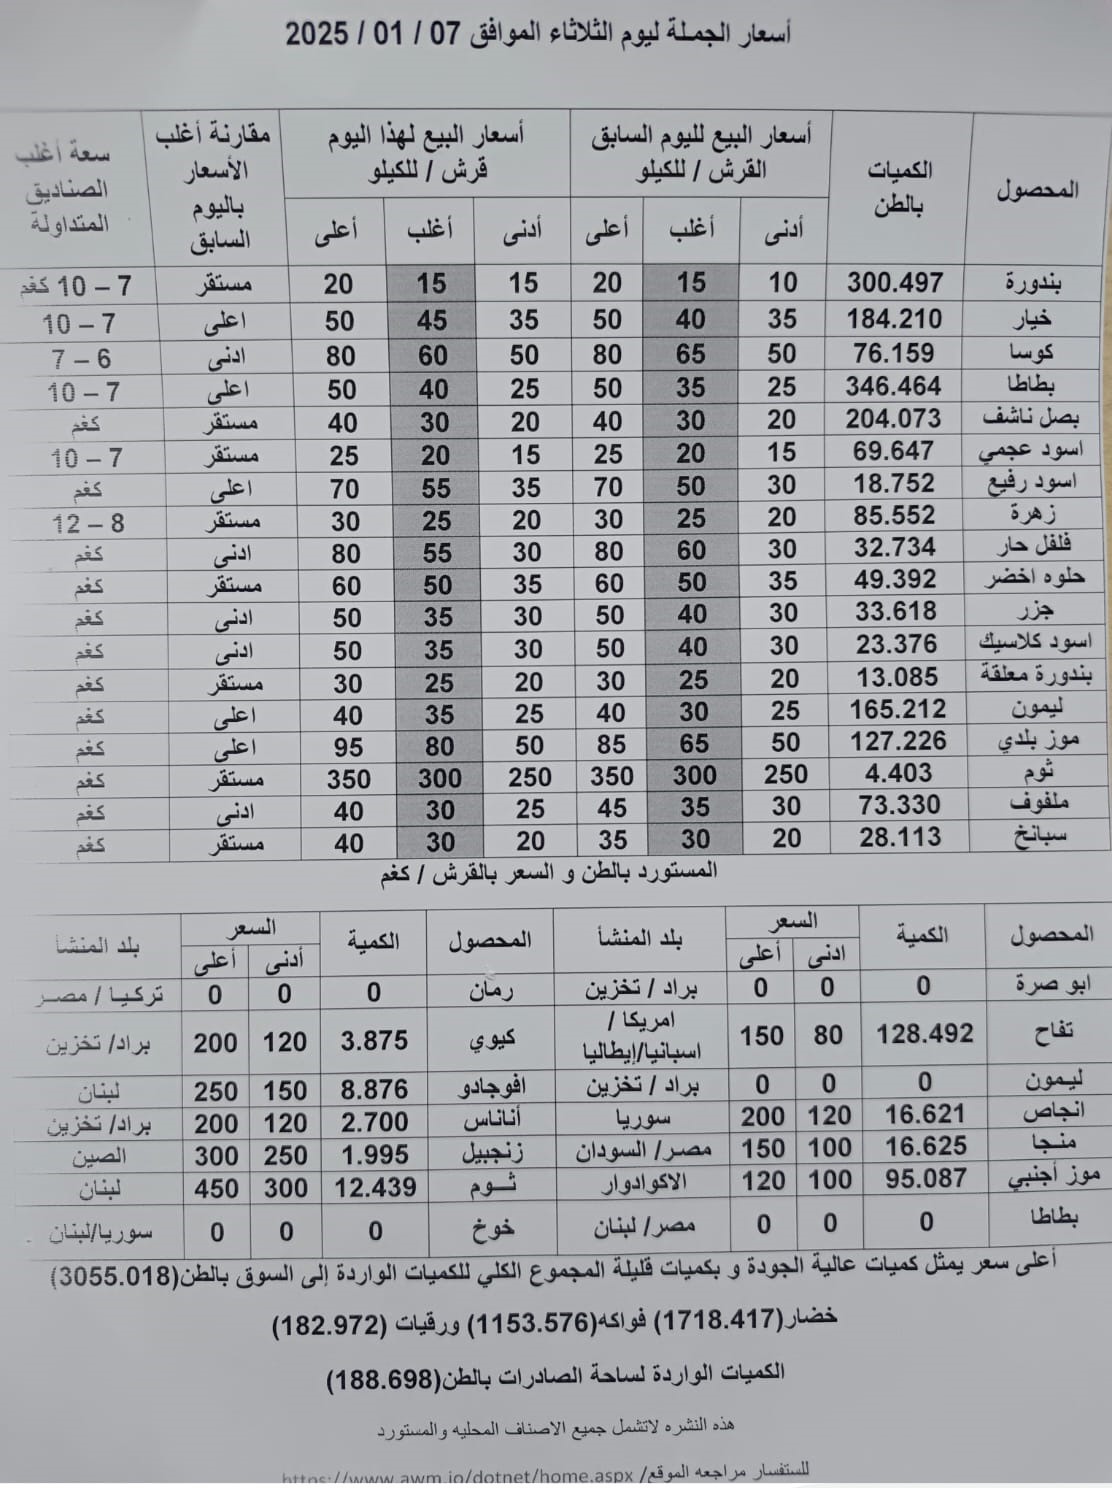 أسعار الجملة ليوم الثلاثاء الموافق 07 / 01 / 2025
المحصول | الكميات بالطن | أسعار البيع لليوم السابق القرش / للكيلو | أسعار البيع لهذا اليوم قرش / للكيلو | مقارنة أغلب الأسعار باليوم السابق | سعة أغلب الصناديق المتداولة
أدنى | أغلب | أعلى | أدنى | أغلب | أعلى
بندورة | 300.497 | 10 | 15 | 20 | 15 | 15 | 20 | مستقر | 7 – 10 كغم
خيار | 184.210 | 35 | 40 | 50 | 35 | 45 | 50 | اعلى | 7 – 10
كوسا | 76.159 | 50 | 65 | 80 | 50 | 60 | 80 | ادنى | 6 – 7
بطاطا | 346.464 | 25 | 35 | 50 | 25 | 40 | 50 | اعلى | 7 – 10
بصل ناشف | 204.073 | 20 | 30 | 40 | 20 | 30 | 40 | مستقر | كغم
اسود عجمي | 69.647 | 15 | 20 | 25 | 15 | 20 | 25 | مستقر | 7 – 10
اسود رفيع | 18.752 | 30 | 50 | 70 | 35 | 55 | 70 | اعلى | كغم
زهرة | 85.552 | 20 | 25 | 30 | 20 | 25 | 30 | مستقر | 8 – 12
فلفل حار | 32.734 | 30 | 60 | 80 | 30 | 55 | 80 | ادنى | كغم
حلوه اخضر | 49.392 | 35 | 50 | 60 | 35 | 50 | 60 | مستقر | كغم
جزر | 33.618 | 30 | 40 | 50 | 30 | 35 | 50 | ادنى | كغم
اسود كلاسيك | 23.376 | 30 | 40 | 50 | 30 | 35 | 50 | ادنى | كغم
بندورة معلقة | 13.085 | 20 | 25 | 30 | 20 | 25 | 30 | مستقر | كغم
ليمون | 165.212 | 25 | 30 | 40 | 25 | 35 | 40 | اعلى | كغم
موز بلدي | 127.226 | 50 | 65 | 85 | 50 | 80 | 95 | اعلى | كغم
ثوم | 4.403 | 250 | 300 | 350 | 250 | 300 | 350 | مستقر | كغم
ملفوف | 73.330 | 30 | 35 | 45 | 25 | 30 | 40 | ادنى | كغم
سبانخ | 28.113 | 20 | 30 | 35 | 20 | 30 | 40 | مستقر | كغم
المستورد بالطن و السعر بالقرش / كغم
المحصول | الكمية | السعر | بلد المنشأ | المحصول | الكمية | السعر | بلد المنشأ
ادنى | أعلى | أدنى | أعلى
ابو صرة | 0 | 0 | 0 | براد / تخزين | رمان | 0 | 0 | 0 | تركيا / مصر
تفاح | 128.492 | 80 | 150 | امريكا / اسبانيا/إيطاليا | كيوي | 3.875 | 120 | 200 | براد/ تخزين
ليمون | 0 | 0 | 0 | براد / تخزين | افوجادو | 8.876 | 150 | 250 | لبنان
انجاص | 16.621 | 120 | 200 | سوريا | أناناس | 2.700 | 120 | 200 | براد/ تخزين
منجا | 16.625 | 100 | 150 | مصر/ السودان | زنجبيل | 1.995 | 250 | 300 | الصين
موز أجنبي | 95.087 | 100 | 120 | الاكوادوار | ثوم | 12.439 | 300 | 450 | لبنان
بطاطا | 0 | 0 | 0 | مصر/ لبنان | خوخ | 0 | 0 | 0 | سوريا/لبنان
أعلى سعر يمثل كميات عالية الجودة و بكميات قليلة المجموع الكلي للكميات الواردة إلى السوق بالطن(3055.018)
خضار(1718.417) فواكه(1153.576) ورقيات (182.972)
الكميات الواردة لساحة الصادرات بالطن(188.698)
هذه النشره لاتشمل جميع الاصناف المحليه والمستورد
للستفسار مراجعه الموقع/ https://www.awm.jo/dotnet/home.aspx